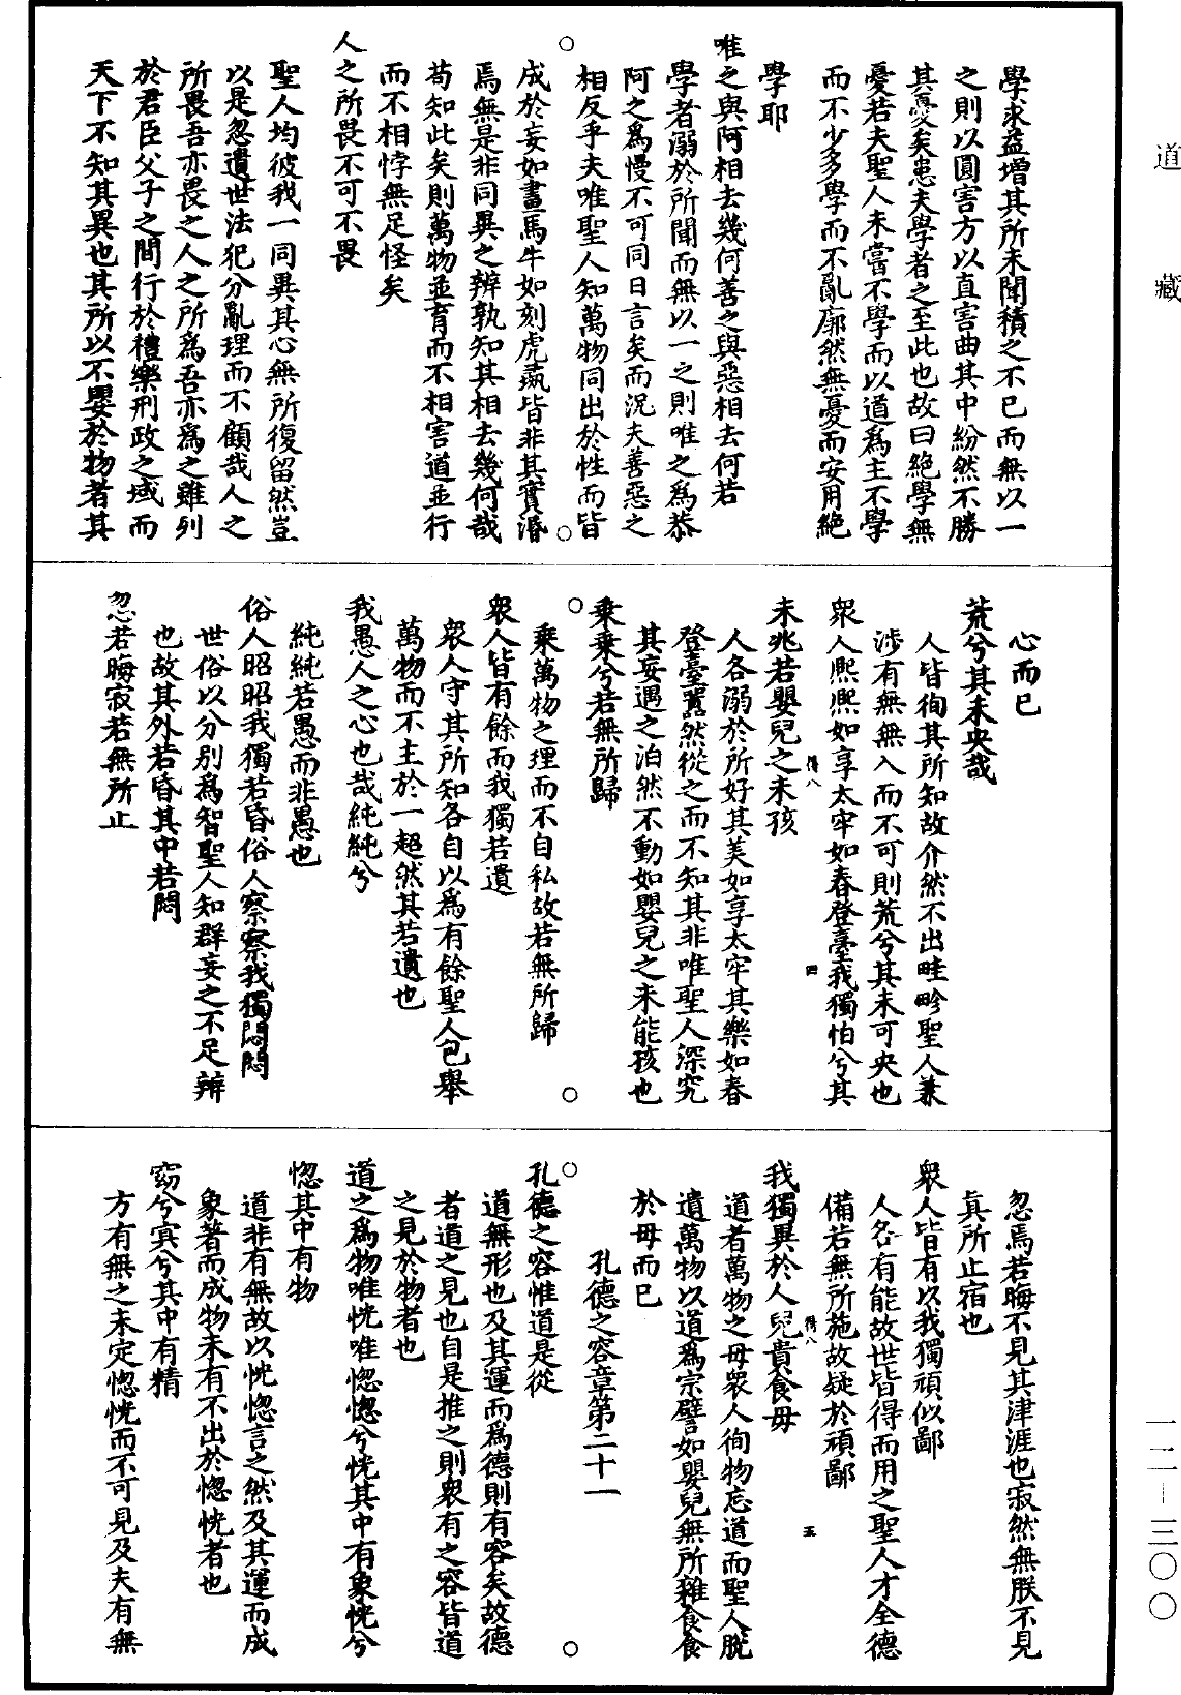 道藏
學求益增其所未聞積之不已而無以一
之則以圓害方以直害曲其中紛然不勝
其憂矣患夫學者之至此也故曰絕學無
憂若夫聖人未嘗不學而以道為主不學
而不少多學而不亂廓然無憂而安用絕
學耶
唯之與阿相去幾何善之與惡相去何若
學者溺於所聞而無以一之則唯之為恭
阿之為慢不可同日言矣而況夫善惡之
相反乎夫唯聖人知萬物同出於性而皆
成於妄如畫馬牛如刻虎彘皆非其實湣
焉無是非同異之辨孰知其相去幾何哉
苟知此矣則萬物並育而不相害道並行
而不相悖無足怪矣
人之所畏不可不畏
聖人均彼我一同異其心無所復留然豈
以是忽遺世法犯分亂理而不顧哉人之
所畏吾亦畏之人之所為吾亦為之雖列
於君臣父子之間行於禮樂刑政之域而
天下不知其異也其所以不嬰於物者其
心而已
荒兮其未央哉
人皆徇其所知故介然不出畦畛聖人兼
涉有無無入而不可則荒兮其未可央也
眾人熙熙如享太牢如春登臺我獨怕兮其
未兆若嬰兒之未孩
人各溺於所好其美如享太牢其樂如春
登臺囂然從之而不知其非唯聖人深究
其妄遇之泊然不動如嬰兒之未能孩也
乘乘兮若無所歸
乘萬物之理而不自私故若無所歸
眾人皆有餘而我獨若遺
眾人守其所知各自以為有餘聖人包舉
萬物而不主於一超然其若遺也
我愚人之心也哉純純兮
純純若愚而非愚也
俗人昭昭我獨若昏俗人察察我獨悶悶
世俗以分別為智聖人知群妄之不足辨
也故其外若昏其中若悶
忽若晦寂若無所止
忽焉若晦不見其津涯也寂然無朕不見
真所止宿也
眾人皆有以我獨頑似鄙
人各有能故世皆得而用之聖人才全德
備若無所施故疑於頑鄙
我獨異於人兒貴食母
道者萬物之母眾人徇物忘道而聖人脫
遺萬物以道為宗譬如嬰兒無所雜食食
於母而已
孔德之容章第二十一
孔德之容惟道是從
道無形也及其運而為德則有容矣故德
者道之見也自是推之則眾有之容皆道
之見於物者也
道之為物唯恍唯惚惚兮恍其中有象恍兮
惚其中有物
道非有無故以恍惚言之然及其運而成
象著而成物未有不出於惚恍者也
窈兮冥兮其中有精
方有無之未定惚恍而不可見及夫有無
四
五
一二—三〇〇